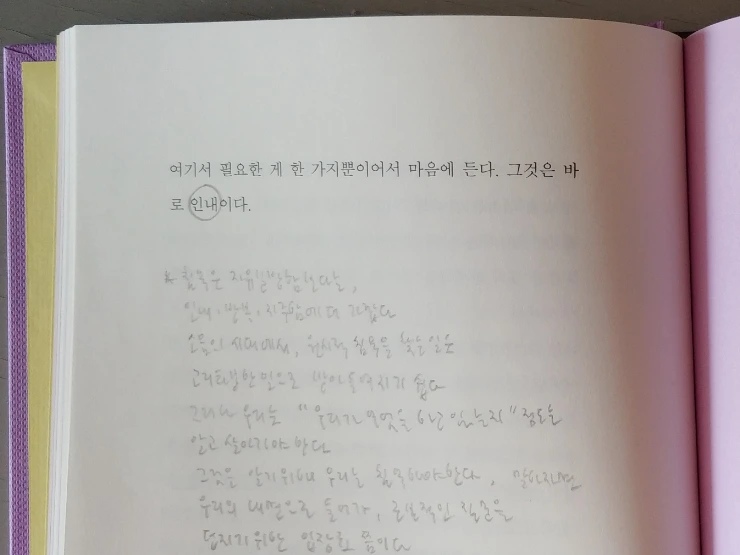 여기서 필요한 게 한 가지뿐이어서 마음에 든다. 그것은 바
로 인내이다.
* 침묵은 자유분방함보다는,
인내·반복·지루함에 더 가깝다
소음의 시대에서, 원시적 침묵을 찾는 일은
고리타분한 일으로 받아들여지기 쉽다
그러나 우리는 "우리가 무엇을 하고 있는지" 정도는
알고 살아가야 한다
그것을 알기위해 우리는 침묵해야한다, 말하자면
우리의 내면으로 들어가, 근본적인 질문을
던지기 위한 입장료 쯤이다